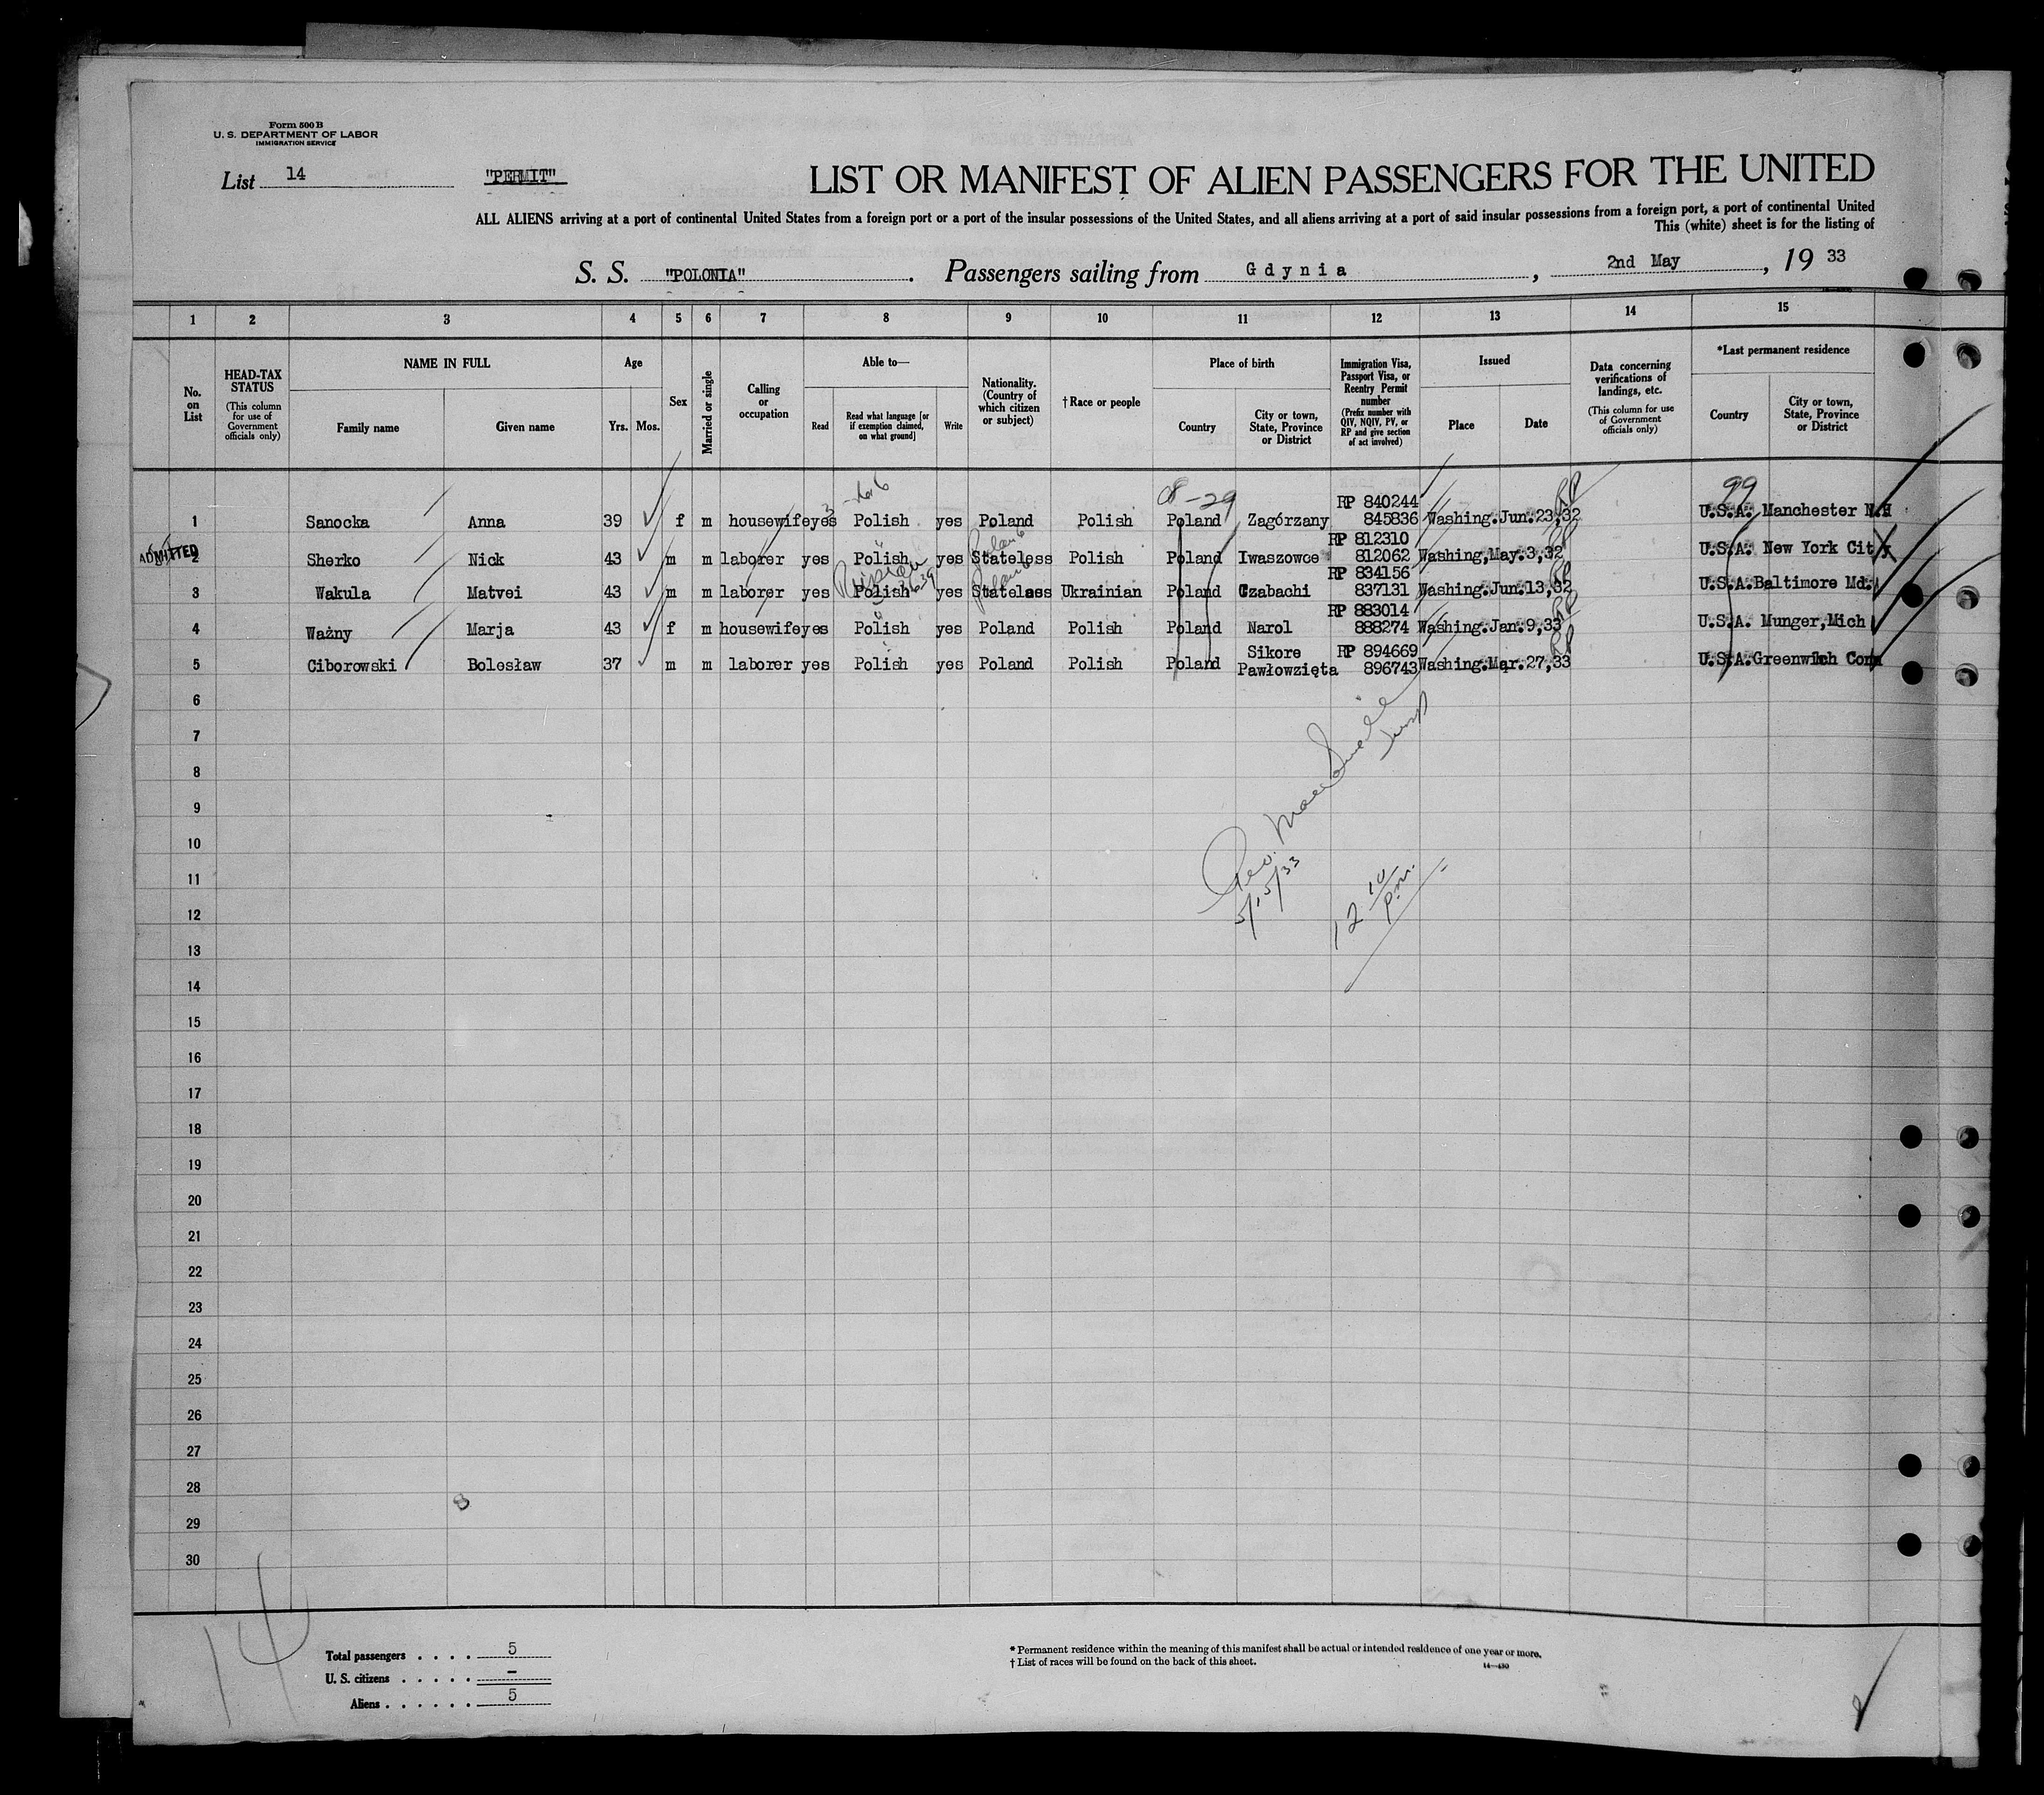 Form 500 B
U. S. DEPARTMENT OF LABOR
IMMIGRATION SERVICE
List 14
"PERMIT"
LIST OR MANIFEST OF ALIEN PASSENGERS FOR THE UNITED
ALL ALIENS arriving at a port of continental United States from a foreign port or a port of the insular possessions of the United States, and all aliens arriving at a port of said insular possessions from a foreign port, a port of continental United
This (white) sheet is for the listing of
S. S. "POLONIA". Passengers sailing from Gdynia, 2nd May, 19 33
1 2 3 4 5 6 7 8 9 10 11 12 13 14 15
No. on List
HEAD-TAX STATUS (This column for use of Government officials only)
NAME IN FULL Family name Given name
Age Yrs. Mos.
Sex
Married or single
Calling or occupation
Able to— Read Read what language [or if exemption claimed, on what ground] Write
Nationality. (Country of which citizen or subject)
†Race or people
Place of birth Country City or town, State, Province or District
Immigration Visa, Passport Visa, or Reentry Permit number (Prefix number with QIV, NQIV, PV, or RP and give section of act involved)
Issued Place Date
Data concerning verifications of landings, etc. (This column for use of Government officials only)
*Last permanent residence Country City or town, State, Province or District
8-29 99
1 Sanocka Anna 39 f m housewife yes Polish yes Poland Polish Poland Zagórzany RP 840244 845836 Washing. Jun. 23,32 U.S.A. Manchester N.H
ADMITTED
2 Sherko Nick 43 m m laborer yes Polish yes Stateless Poland Polish Poland Iwaszowce RP 812310 812062 Washing, May. 3,32 U.S.A. New York City
3 Wakula Matvei 43 m m laborer yes Polish yes Stateless Poland Ukrainian Poland Czabachi RP 834156 837131 Washing. Jun. 13,32 U.S.A. Baltimore Md.
4 Ważny Marja 43 f m housewife yes Polish yes Poland Polish Poland Narol RP 883014 888274 Washing. Jan. 9,33 U.S.A. Munger, Mich
5 Ciborowski Bolesław 37 m m laborer yes Polish yes Poland Polish Poland Sikore Pawłowzięta RP 894669 896743 Washing. Mar. 27,33 U.S.A. Greenwich Conn
6
7
8
9
10
11
12
13
14
15
16
17
18
19
20
21
22
23
24
25
26
27
28
29
30
Geo.
5/15/33
12 10 p.m.
8
14
Total passengers . . . . 5
U. S. citizens . . . . . –
Aliens . . . . . . 5
* Permanent residence within the meaning of this manifest shall be actual or intended residence of one year or more.
† List of races will be found on the back of this sheet.
14—430